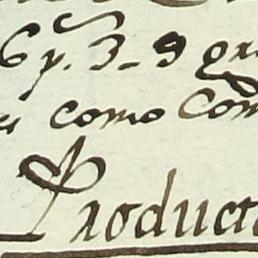 6 p. 3_9 gra
como Com
Producto